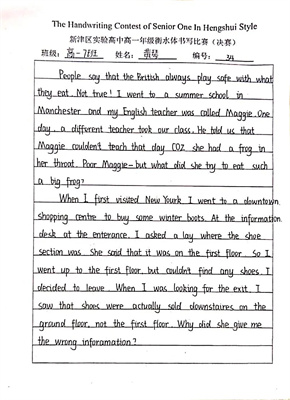 The Handwriting Contest of Senior One In Hengshui Style
新津区实验高中高一年级衡水体书写比赛（决赛）
班级：高一7班 姓名： 编号：34
People say that the British always play safe with what
they eat. Not true! I went to a summer school in
Manchester and my English teacher was called Maggie. One
day, a different teacher took our class. He told us that
Maggie couldn't teach that day COZ she had a frog in
her throat. Poor Maggie-but what did she try to eat such
a big frog?
When I first visited New Yourk I went to a downtown
shopping centre to buy some winter boots. At the information
desk at the enterance. I asked a lay where the shoe
section was. She said that it was on the first floor. So I
went up to the first floor but couldn't find any shoes. I
decided to leave. When I was looking for the exit. I
saw that shoes were actually sold downstaires on the
ground floor, not the first floor. Why did she give me
the wrong inforamation?